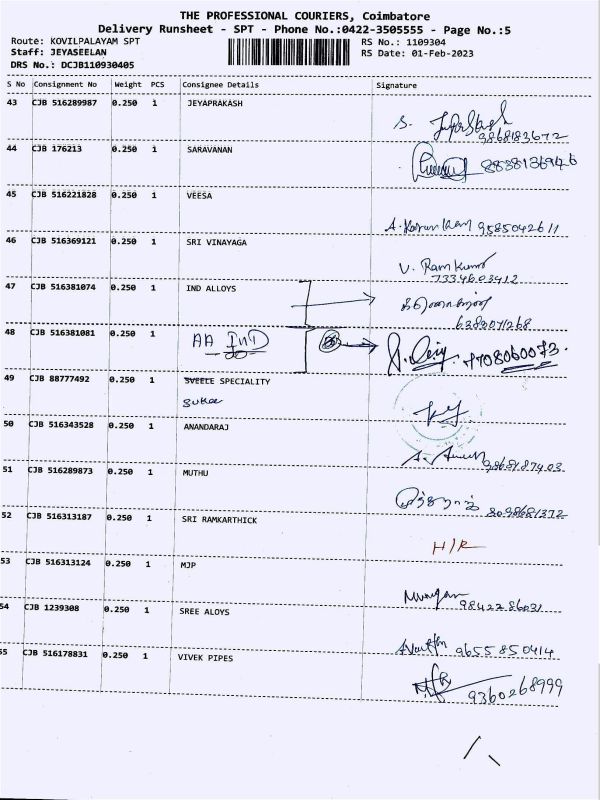 THE PROFESSIONAL COURIERS, Coimbatore
Delivery Runsheet - SPT - Phone No.:0422-3505555 - Page No.:5
Route: KOVILPALAYAM SPT
Staff: JEYASEELAN
DRS No.: DCJB110930405
RS No.: 1109304
RS Date: 01-Feb-2023
S No Consignment No Weight PCS Consignee Details Signature
43 CJB 516289987 0.250 1 JEYAPRAKASH
S.
9868183672
44 CJB 176213 0.250 1 SARAVANAN
8838136946
45 CJB 516221828 0.250 1 VEESA
9585042611
46 CJB 516369121 0.250 1 SRI VINAYAGA
V. Ramkumar
7334603412
47 CJB 516381074 0.250 1 IND ALLOYS
6380071268
48 CJB 516381081 0.250 1 AA IND
7708060073.
49 CJB 88777492 0.250 1 SVEELE SPECIALITY
50 CJB 516343528 0.250 1 ANANDARAJ
51 CJB 516289873 0.250 1 MUTHU
8098681372
52 CJB 516313187 0.250 1 SRI RAMKARTHICK
H/R
53 CJB 516313124 0.250 1 MJP
Murugan
9842786031
54 CJB 1239308 0.250 1 SREE ALOYS
9655850414
55 CJB 516178831 0.250 1 VIVEK PIPES
9360268999